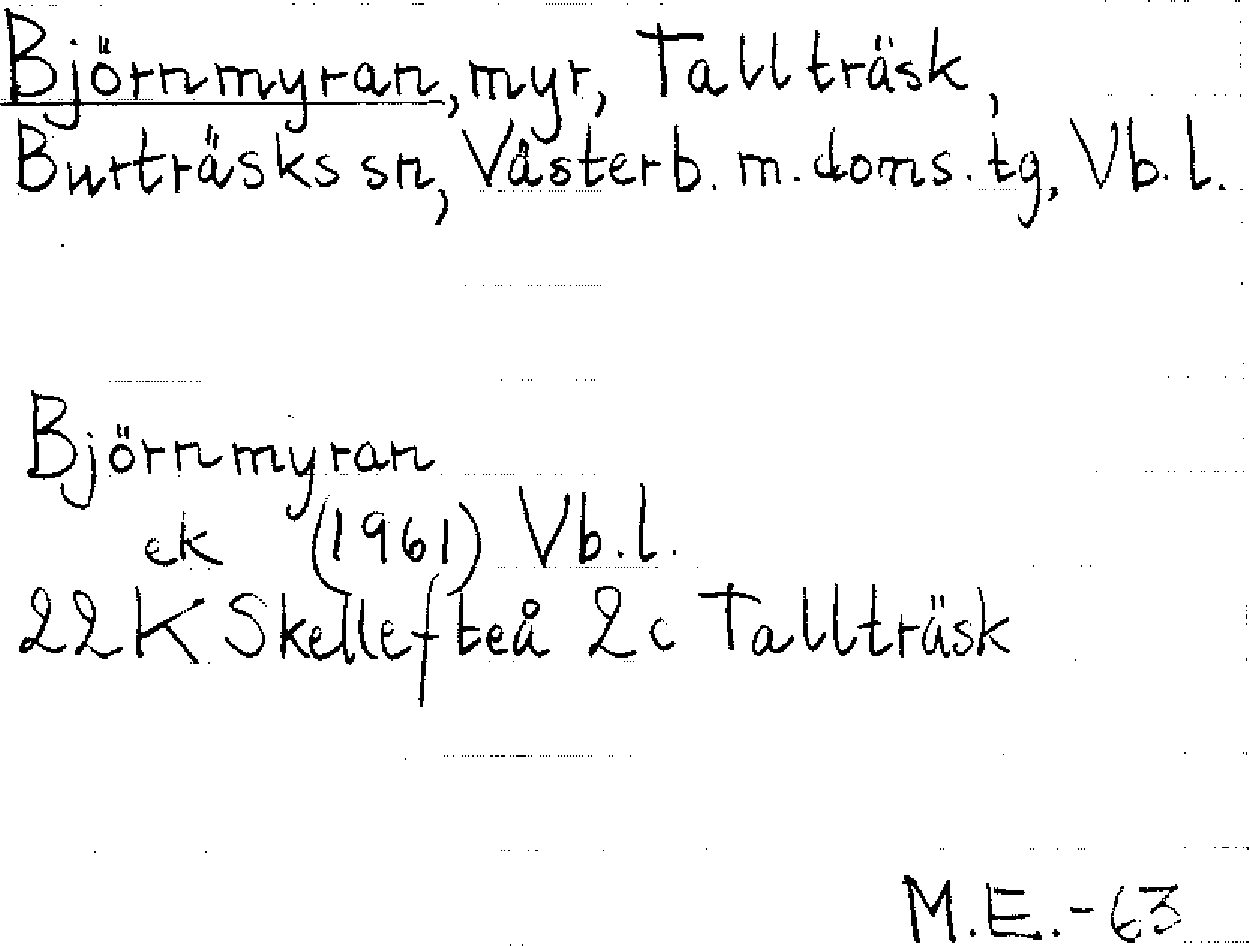 Björnmyran, myr, Tallträsk,
Burträsks sn, Västerb. m. doms. tg, Vb. l.
Björnmyran
ek (1961) Vb. l.
22K Skellefteå 2c Tallträsk
M.E.-63